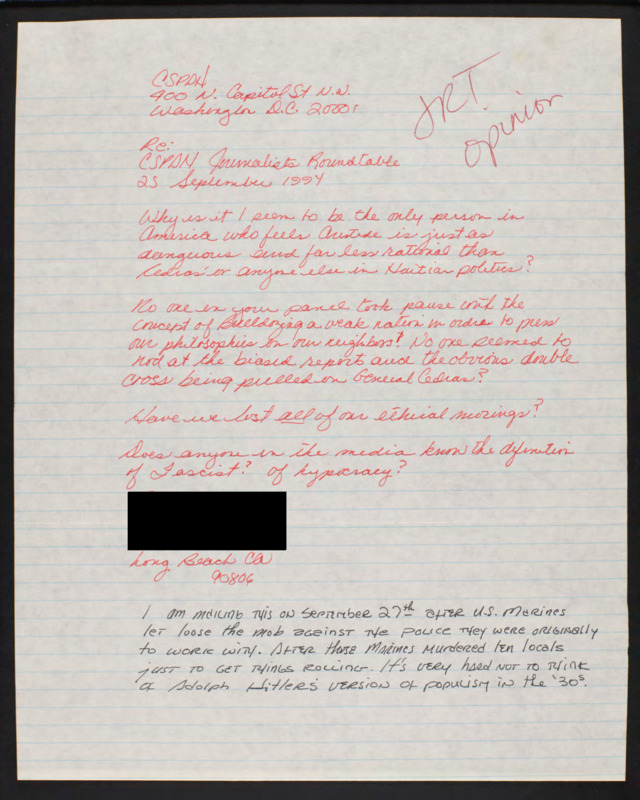 CSPAN
400 N. Capitol St N.W.
Washington D.C. 20001
JRT.
opinion
Re:
CSPAN Journalists Roundtable
25 September 1994
Why is it I seem to be the only person in
America who feels Aristide is just as
dangerous and far less rational than
Cedras or anyone else in Haitian politics?
No one in your panel took pause with the
concept of Bulldozing a weak nation in order to press
our philosophies on our neighbors? No one seemed to
nod at the biased report and the obvious double
cross being pulled on General Cedras?
Have we lost all of our ethical morings?
Does anyone in the media know the definition
of Fascist? of hypocracy?
Long Beach CA
90806
I am mailing this on September 27th after U.S. Marines
let loose the mob against the police they were originally
to work with. After those Marines murdered ten locals
just to get things rolling. It's very hard not to think
of Adolph Hitler's version of populism in the '30s.